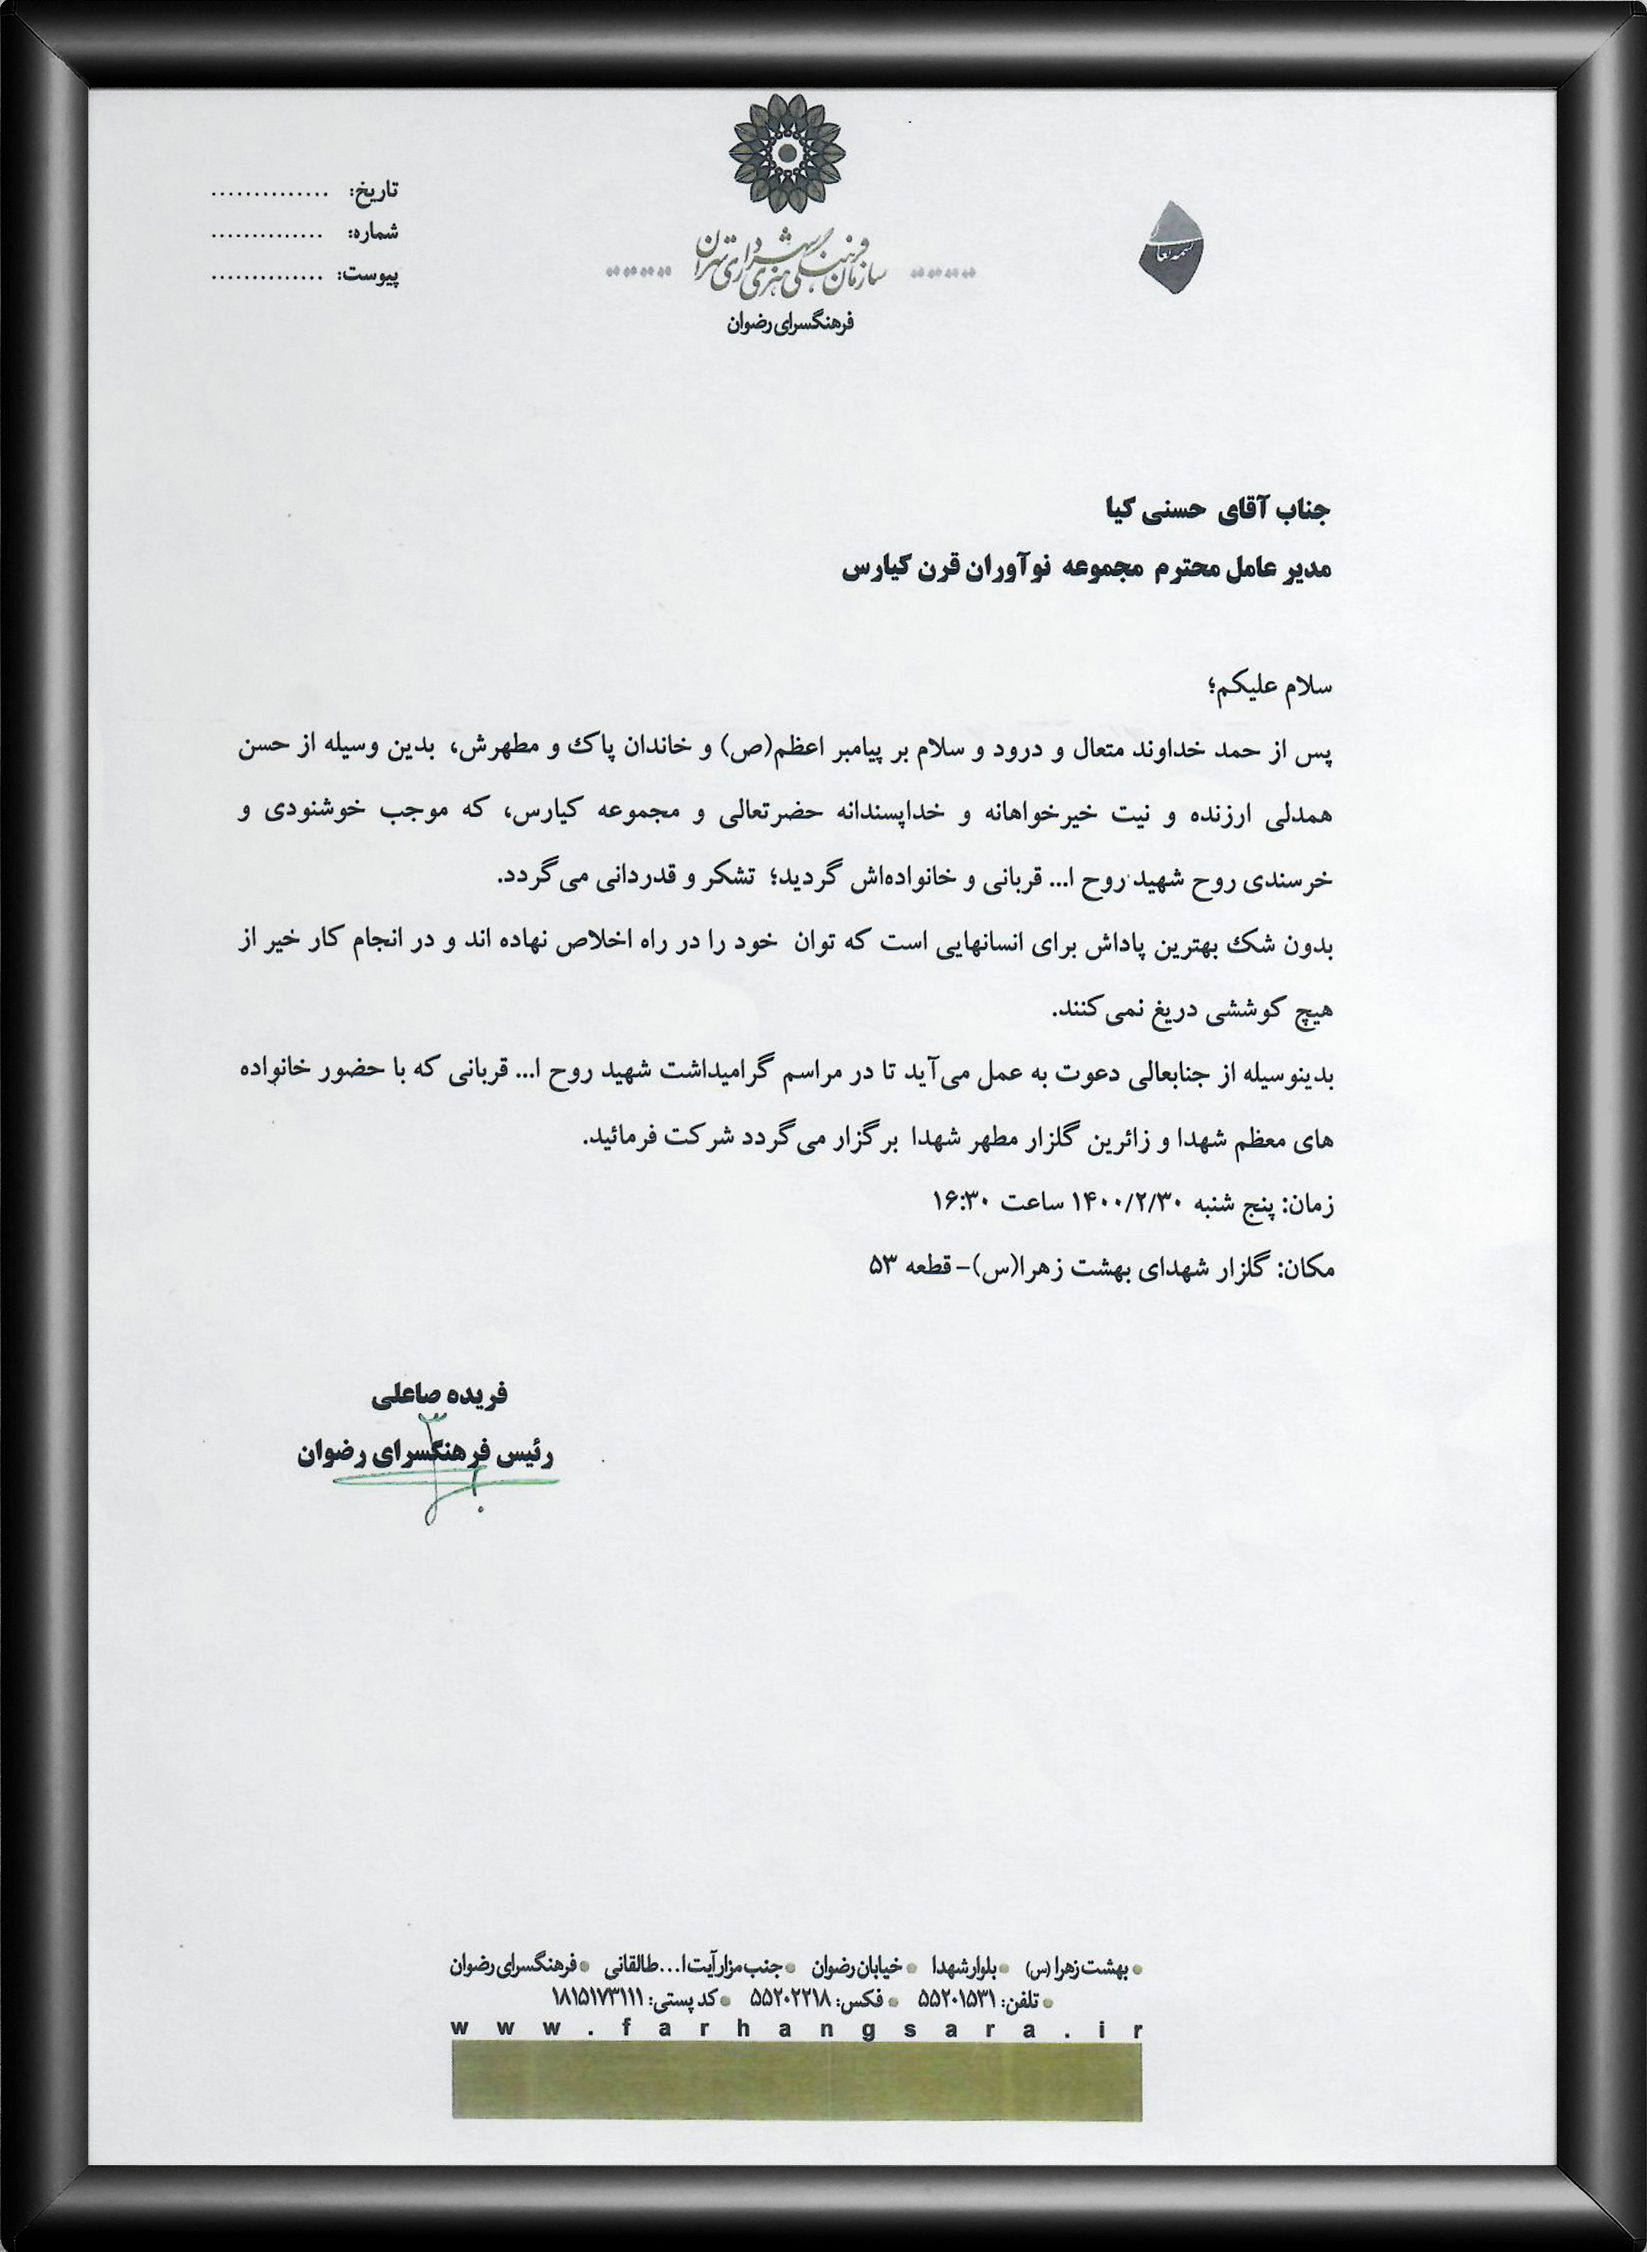 بسمه تعالی
تاریخ: ..............
شماره: ..............
پیوست: ..............
سازمان فرهنگی هنری شهرداری تهران
فرهنگسرای رضوان
جناب آقای حسنی کیا
مدیر عامل محترم مجموعه نوآوران قرن کیارس
سلام علیکم؛
پس از حمد خداوند متعال و درود و سلام بر پیامبر اعظم(ص) و خاندان پاک و مطهرش، بدین وسیله از حسن
همدلی ارزنده و نیت خیرخواهانه و خداپسندانه حضرتعالی و مجموعه کیارس، که موجب خوشنودی و
خرسندی روح شهید روح ا... قربانی و خانواده‌اش گردید؛ تشکر و قدردانی می‌گردد.
بدون شک بهترین پاداش برای انسانهایی است که توان خود را در راه اخلاص نهاده اند و در انجام کار خیر از
هیچ کوششی دریغ نمی‌کنند.
بدینوسیله از جنابعالی دعوت به عمل می‌آید تا در مراسم گرامیداشت شهید روح ا... قربانی که با حضور خانواده
های معظم شهدا و زائرین گلزار مطهر شهدا برگزار می‌گردد شرکت فرمائید.
زمان: پنج شنبه ۱۴۰۰/۲/۳۰ ساعت ۱۶:۳۰
مکان: گلزار شهدای بهشت زهرا(س)- قطعه ۵۳
فریده صاعلی
رئیس فرهنگسرای رضوان
• بهشت زهرا (س) • بلوار شهدا • خیابان رضوان • جنب مزار آیت ا... طالقانی • فرهنگسرای رضوان
• تلفن: ۵۵۲۰۱۵۳۱ • فکس: ۵۵۲۰۲۲۱۸ • کد پستی: ۱۸۱۵۱۷۳۱۱۱
www.farhangsara.ir